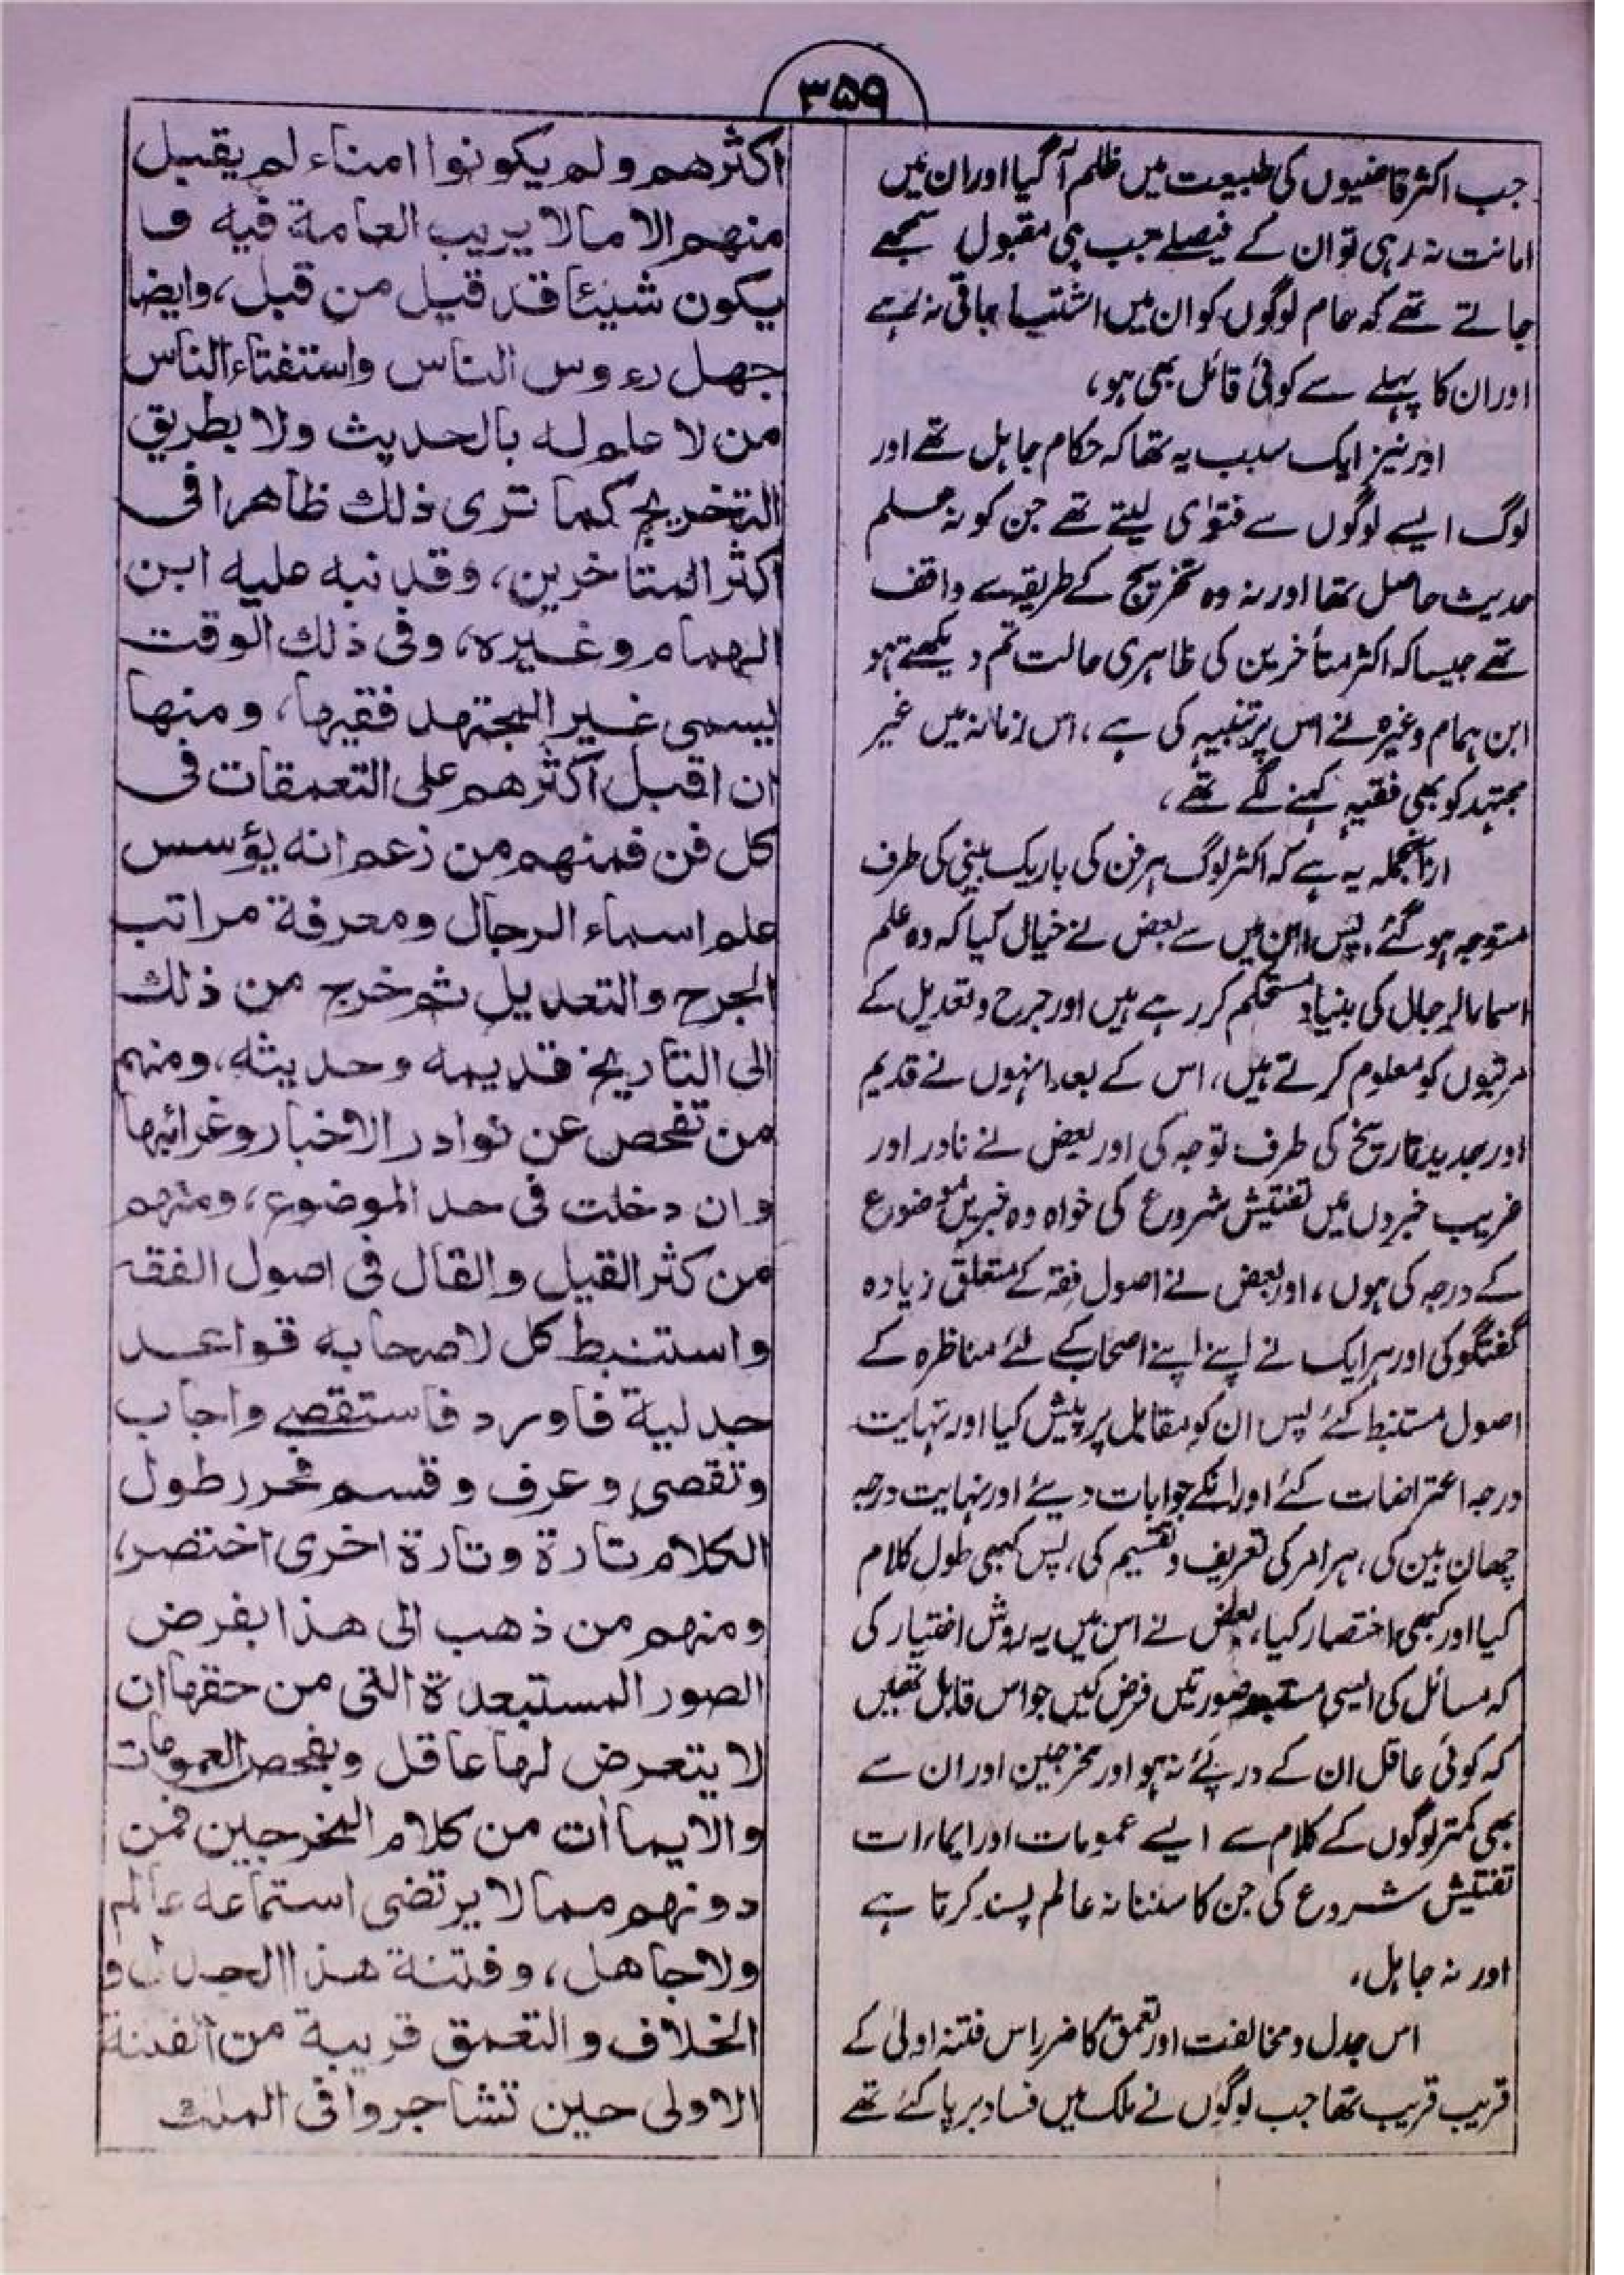 ۳۵۹
جب اکثر قاضیوں کی طبیعت میں ظلم آ گیا اور ان میں
امانت نہ رہی تو ان کے فیصلے جب ہی مقبول سمجھے
جاتے تھے کہ عام لوگوں کو ان میں اشتباہ باقی نہ رہے
اور ان کا پہلے سے کوئی قائل بھی ہو،
اور نیز ایک سبب یہ تھا کہ حکام جاہل تھے اور
لوگ ایسے لوگوں سے فتوٰی لیتے تھے جن کو نہ علم
حدیث حاصل تھا اور نہ وہ تخریج کے طریقہ سے واقف
تھے جیسا کہ اکثر متأخرین کی ظاہری حالت تم دیکھتے ہو
ابن ہمام وغیرہ نے اس پر تنبیہ کی ہے، اس زمانہ میں غیر
مجتہد کو بھی فقیہ کہنے لگے تھے،
ازانجملہ یہ ہے کہ اکثر لوگ ہر فن کی باریک بینی کی طرف
متوجہ ہو گئے، پس ان میں سے بعض نے خیال کیا کہ وہ علم
اسماء الرجال کی بنیاد مستحکم کر رہے ہیں اور جرح و تعدیل کے
مرتبوں کو معلوم کرتے ہیں، اس کے بعد انہوں نے قدیم
اور جدید تاریخ کی طرف توجہ کی اور بعض نے نادر اور
غریب خبروں میں تفتیش شروع کی خواہ وہ خبریں موضوع
کے درجہ کی ہوں، اور بعض نے اصول فقہ کے متعلق زیادہ
گفتگو کی اور ہر ایک نے اپنے اپنے اصحاب کے لئے مناظرہ کے
اصول مستنبط کئے پس ان کو مقابل پر پیش کیا اور نہایت
درجہ اعتراضات کئے اور انکے جوابات دیئے اور نہایت درجہ
چھان بین کی، ہر امر کی تعریف و تقسیم کی، پس کبھی طول کلام
کیا اور کبھی اختصار کیا، بعض نے اس میں یہ روش اختیار کی
کہ مسائل کی ایسی مستبعد صورتیں فرض کیں جو اس قابل تھیں
کہ کوئی عاقل ان کے درپئے نہ ہو اور مخرجین اور ان سے
بھی کمتر لوگوں کے کلام سے ایسے عمومات اور ایماءات
تفتیش شروع کی جن کا سننا نہ عالم پسند کرتا ہے
اور نہ جاہل،
اس جدل و مخالفت اور تعمق کا ضرر اس فتنہ اولیٰ کے
قریب قریب تھا جب لوگوں نے ملک میں فساد برپا کئے تھے
اکثرهم ولم یکونوا امناء لم یقبل
منهم الا مالا یریب العامة فیه و
یکون شیئا قد قیل من قبل، وایضا
جهل رءوس الناس واستفتاء الناس
من لا علم له بالحدیث ولا بطریق
التخریج کما تری ذلك ظاهرا فی
اکثر المتاخرین، وقد نبه علیه ابن
الهمام وغیره، وفی ذلك الوقت
یسمی غیر المجتهد فقیها، ومنها
ان اقبل اکثرهم علی التعمقات فی
کل فن فمنهم من زعم انه یؤسس
علم اسماء الرجال ومعرفة مراتب
الجرح والتعدیل ثم خرج من ذلك
الی التاریخ قدیمه وحدیثه، ومنهم
من تفحص عن نوادر الاخبار وغرائبها
وان دخلت فی حد الموضوع، ومنهم
من کثر القیل والقال فی اصول الفقه
واستنبط کل لاصحابه قواعد
جدلیة فاورد فاستقصی واجاب
وتقصی وعرف وقسم فحرر طول
الکلام تارة وتارة اخری اختصر،
ومنهم من ذهب الی هذا بفرض
الصور المستبعدة التی من حقها ان
لا یتعرض لها عاقل وبفحص العمومات
والایماأت من کلام المخرجین فمن
دونهم مما لا یرتضی استماعه عالم
ولا جاهل، وفتنة هذا الجدال و
الخلاف والتعمق قریبة من الفتنة
الاولی حین تشاجروا فی الملك